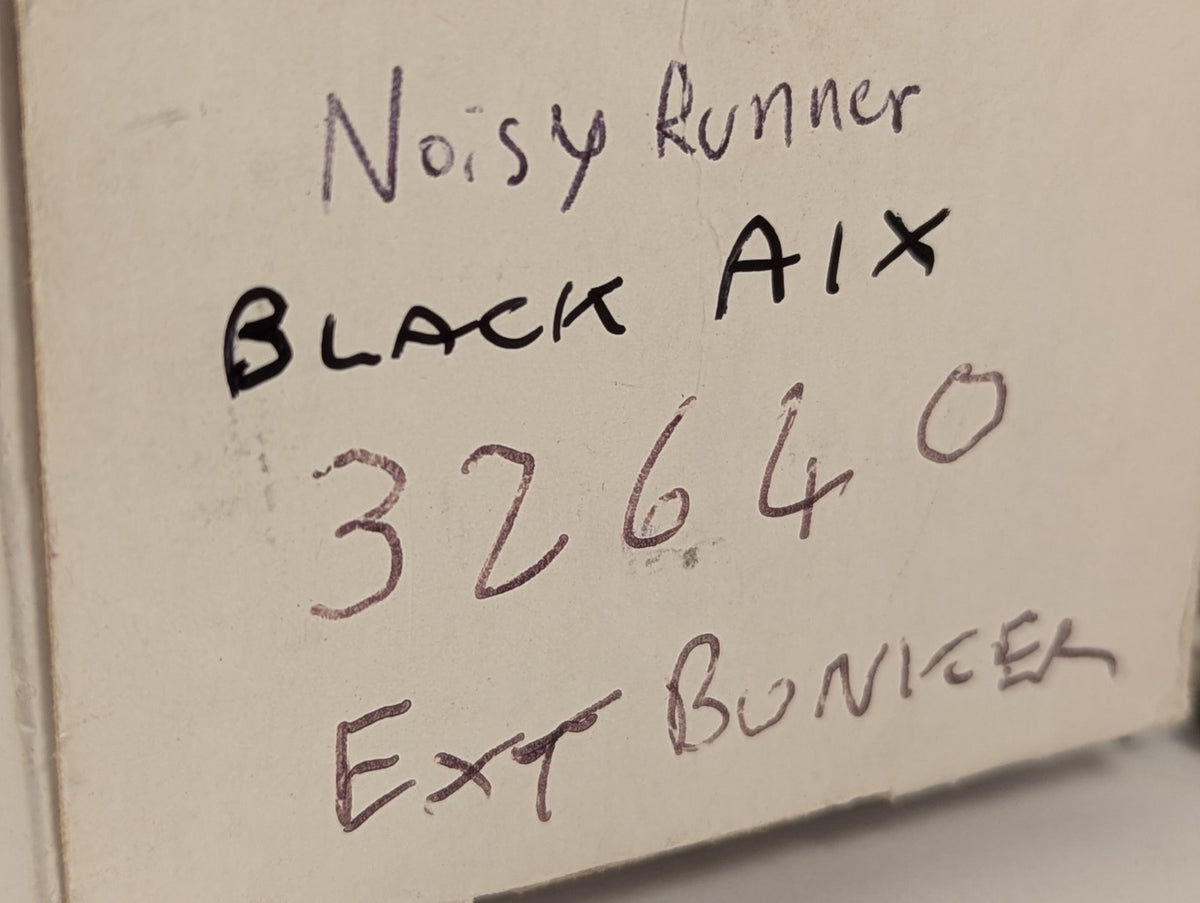 Noisy Runner
BLACK AIX
32640
EXT BUNKER